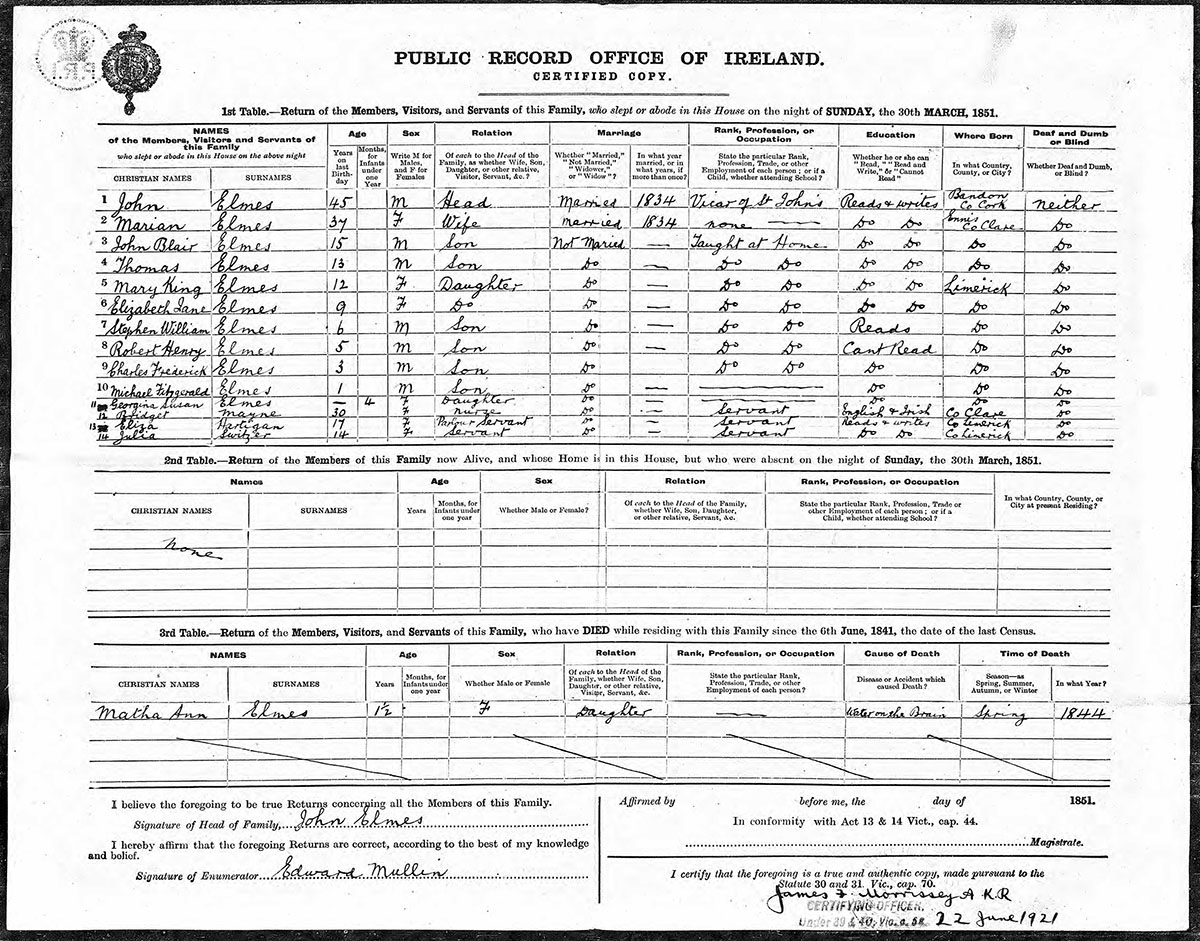 P.R.I.
PUBLIC RECORD OFFICE OF IRELAND.
CERTIFIED COPY.
1st Table.—Return of the Members, Visitors, and Servants of this Family, who slept or abode in this House on the night of SUNDAY, the 30th MARCH, 1851.
NAMES of the Members, Visitors and Servants of this Family who slept or abode in this House on the above night | Age | Sex | Relation | Marriage | Rank, Profession, or Occupation | Education | Where Born | Deaf and Dumb or Blind
CHRISTIAN NAMES | SURNAMES | Years on last Birthday | Months, for Infants under one Year | Write M for Males, and F for Females | Of each to the Head of the Family, as whether Wife, Son, Daughter, or other relative, Visitor, Servant, &c. ? | Whether "Married," "Not Married," "Widower," or "Widow" ? | In what year married, or in what years, if more than once? | State the particular Rank, Profession, Trade, or other Employment of each person ; or if a Child, whether attending School ? | Whether he or she can "Read," "Read and Write," or "Cannot Read" | In what Country, County, or City? | Whether Deaf and Dumb, or Blind ?
1 John Elmes 45 M Head Married 1834 Vicar of St Johns Reads & writes Bandon Co Cork neither
2 Marian Elmes 37 F Wife married 1834 none — Do Do Ennis Co Clare Do
3 John Blair Elmes 15 M Son Not Maried — Taught at Home Do Do Do Do
4 Thomas Elmes 13 M Son Do — Do Do Do Do Do Do
5 Mary King Elmes 12 F Daughter Do — Do Do Do Do Limerick Do
6 Elizabeth Jane Elmes 9 F Do Do — Do Do Do Do Do Do
7 Stephen William Elmes 6 M Son Do — Do Do Reads Do Do
8 Robert Henry Elmes 5 M Son Do — Do Do Cant Read Do Do
9 Charles Frederick Elmes 3 M Son Do — Do Do Do Do Do
10 Michael Fitzgerald Elmes 1 M Son Do — — Do Do Do
11 Georgina Susan Elmes — 4 F Daughter Do — — Do Do Do
12 Bridget Mayne 30 F nurse Do — Servant English & Irish Co Clare Do
13 Eliza Hartigan 17 F Parlour Servant Do — Servant Reads & writes Co Limerick Do
14 Julia Switzer 14 F Servant Do — Servant Do Do Co Limerick Do
2nd Table.—Return of the Members of this Family now Alive, and whose Home is in this House, but who were absent on the night of Sunday, the 30th March, 1851.
Names | Age | Sex | Relation | Rank, Profession, or Occupation | In what Country, County, or City at present Residing?
CHRISTIAN NAMES | SURNAMES | Years | Months, for Infants under one year | Whether Male or Female? | Of each to the Head of the Family, whether Wife, Son, Daughter, or other relative, Servant, &c. | State the particular Rank, Profession, Trade or other Employment of each person ; or if a Child, whether attending School ?
none
3rd Table.—Return of the Members, Visitors, and Servants of this Family, who have DIED while residing with this Family since the 6th June, 1841, the date of the last Census.
NAMES | Age | Sex | Relation | Rank, Profession, or Occupation | Cause of Death | Time of Death
CHRISTIAN NAMES | SURNAMES | Years | Months, for Infants under one year | Whether Male or Female | Of each to the Head of the Family, whether Wife, Son, Daughter, or other relative, Visitor, Servant, &c. | State the particular Rank, Profession, Trade, or other Employment of each person? | Disease or Accident which caused Death? | Season—as Spring, Summer, Autumn, or Winter | In what Year?
Matha Ann Elmes 1½ F Daughter — Water on the Brain Spring 1844
I believe the foregoing to be true Returns concerning all the Members of this Family.
Signature of Head of Family, John Elmes
I hereby affirm that the foregoing Returns are correct, according to the best of my knowledge
and belief.
Signature of Enumerator Edward Mullin
Affirmed by before me, the day of 1851.
In conformity with Act 13 & 14 Vict., cap. 44.
Magistrate.
I certify that the foregoing is a true and authentic copy, made pursuant to the
Statute 30 and 31. Vic., cap. 70.
James F Morrissey A K.R
CERTIFYING OFFICER.
Under 39 & 40, Vic. c. 58. 22 June 1921